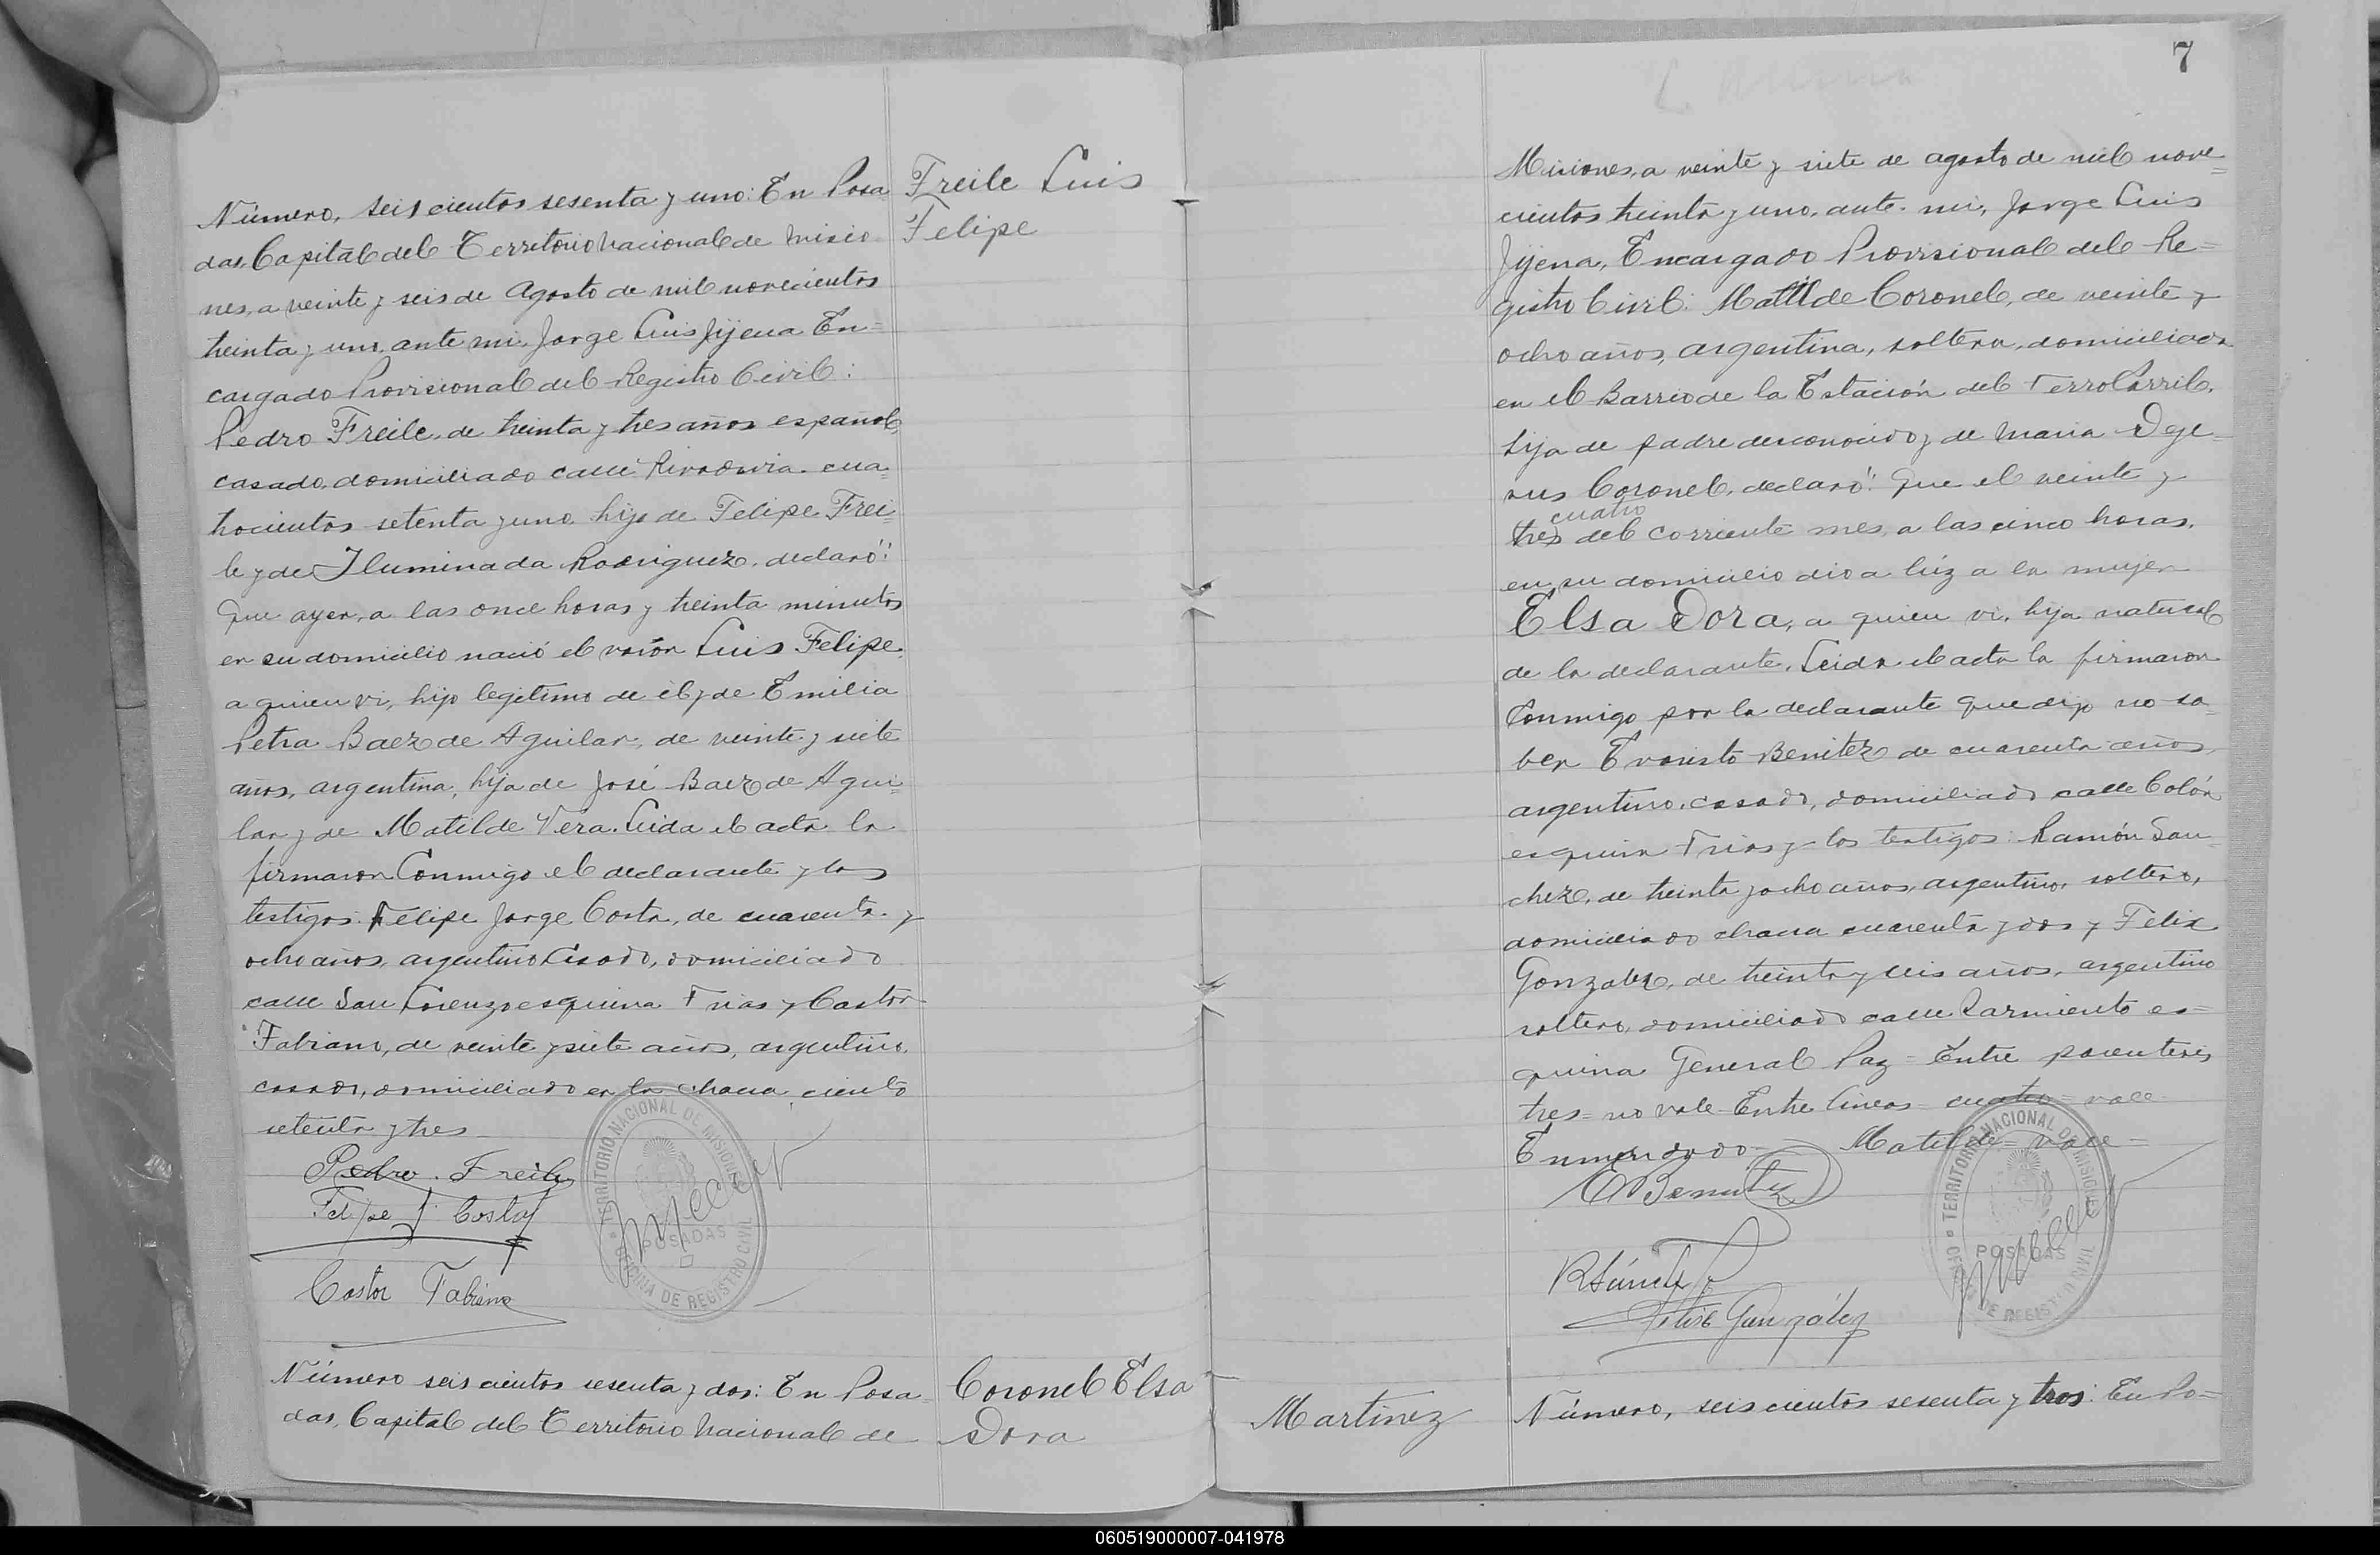 Número, seis cientos sesenta y uno: En Posa
das, Capital del Territorio Nacional de Misio
nes, a veinte y seis de Agosto de mil novecientos
treinta y uno, ante mi, Jorge Luis Jijena En=
cargado Provisional del Registro Civil:
Pedro Freile, de treinta y tres años español,
casado, domiciliado calle Rivadavia cua=
trocientos setenta y uno, hijo de Felipe Frei=
le y de Iluminada Rodriguez, declaró:
Que ayer, a las once horas y treinta minutos
en su domicilio nació el varón Luis Felipe,
a quien vi, hijo legítimo de él y de Emilia
Petra Baez de Aguilar, de veinte y siete
años, argentina, hija de José Baez de Agui=
lar y de Matilde Vera. Leida el acta la
firmaron Conmigo el declarante y los
testigos: Felipe Jorge Costa, de cuarenta y
ocho años, argentino casado, domiciliado
calle San Lorenzo esquina Frias y Castor
Fabiano, de veinte y siete años, argentino,
casado, domiciliado en la chacra ciento
setenta y tres
Pedro. Freile
Felipe J. Costa
Castor Fabiano
TERRITORIO NACIONAL DE MISIONES
POSADAS
OFICINA DE REGISTRO CIVIL
Número seis cientos sesenta y dos: En Posa=
das, Capital del Territorio Nacional de
Freile Luis
Felipe
Coronel Elsa
Dora
7
Misiones, a veinte y siete de agosto de mil nove=
cientos treinta y uno, ante mi, Jorge Luis
Jijena, Encargado Provisional del Re=
gistro Civil: Matilde Coronel, de veinte y
ocho años, argentina, soltera, domiciliada
en el Barrio de la Estación del Ferro Carril,
hija de padre desconocido y de Maria
Coronel, declaró: Que el veinte y
cuatro
(tres) del corriente mes, a las cinco horas,
en su domicilio dió a lúz a la mujer
Elsa Dora, a quien vi, hija natural
de la declarante. Leida el acta la firmaron
Conmigo por la declarante que dijo no sa=
ber Evaristo Benitez de cuarenta años,
argentino, casado, domiciliado calle Colón
esquina Frias y los testigos: Ramón San=
chez, de treinta y ocho años, argentino, soltero,
domiciliado chacra cuarenta y dos y Felix
Gonzalez, de treinta y seis años, argentino
soltero, domiciliado calle Sarmiento es=
quina General Paz = Entre parentesis
tres = no vale - Entre lineas - cuatro = vale
Enmendado - Matilde = vale =
E Benitez
R Sánchez
Felix González
TERRITORIO NACIONAL DE MISIONES
POSADAS
OFICINA DE REGISTRO CIVIL
Martinez
Número, seis cientos sesenta y tres: En Po=
060519000007-041978